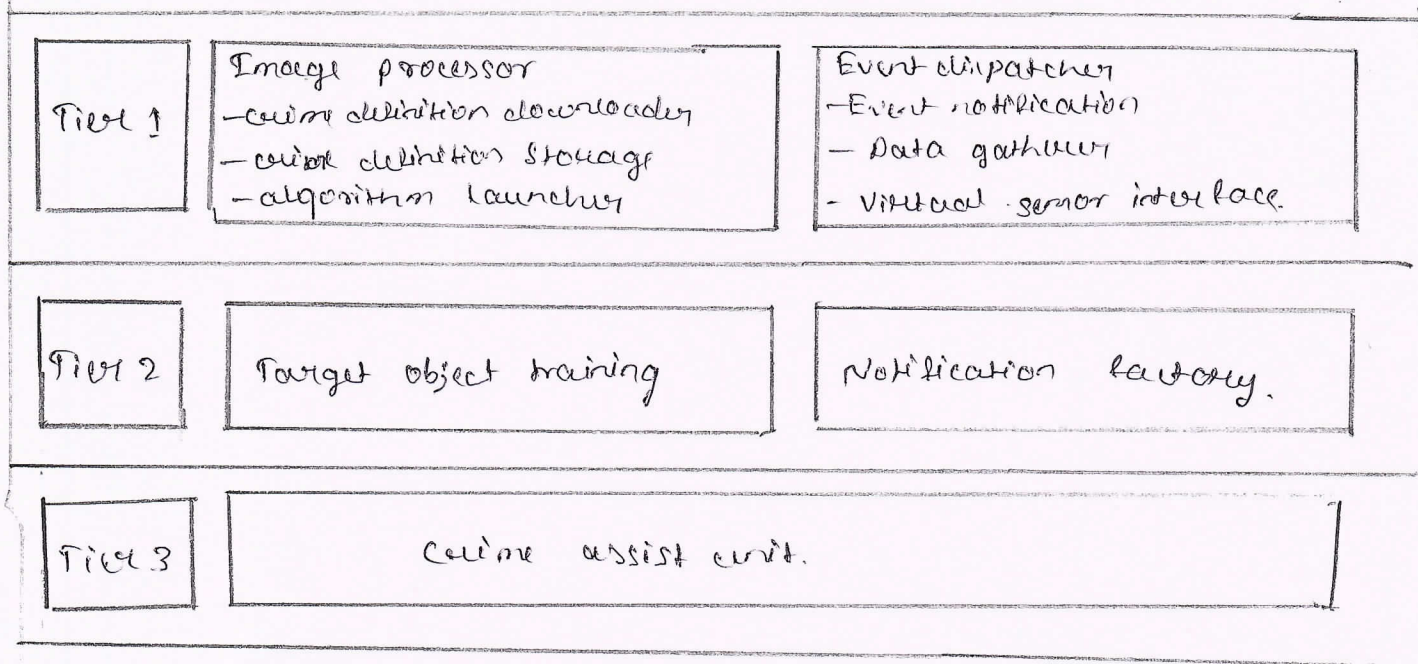 Tier 1
Image processor
- crime definition downloader
- crime definition storage
- algorithm launcher
Event dispatcher
- Event notification
- Data gatherer
- Virtual sensor interface.
Tier 2
Target object training
Notification factory.
Tier 3
Crime assist unit.